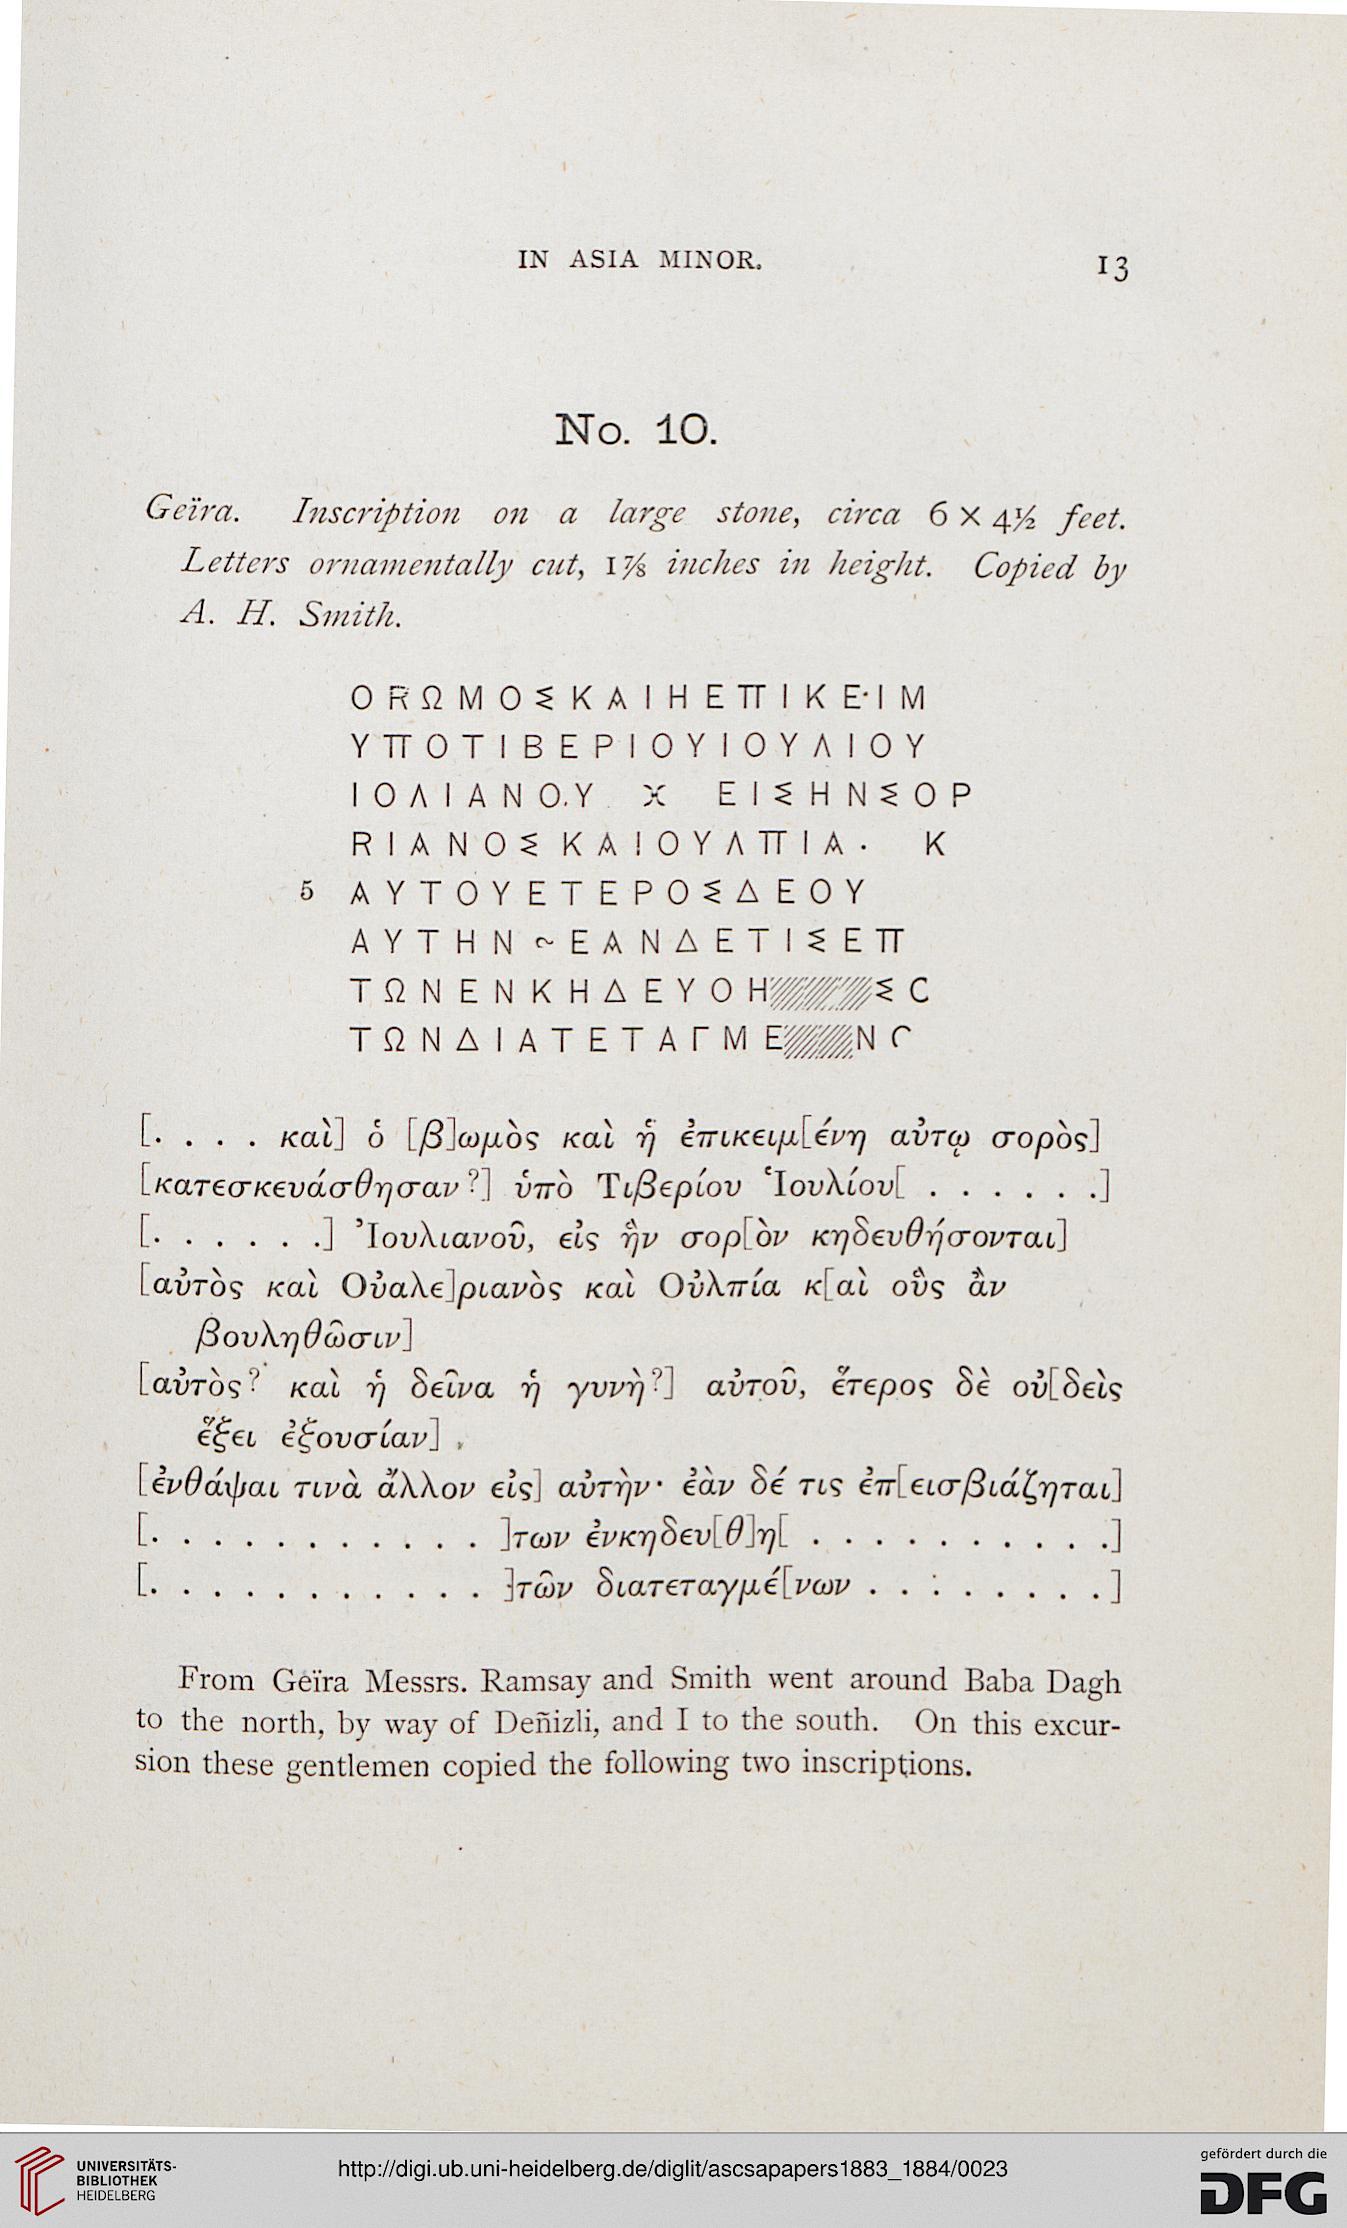 IN ASIA MINOR.
13
No. 10.
Geïra. Inscription on a large stone, circa 6 × 4½ feet.
Letters ornamentally cut, 1⅞ inches in height. Copied by
A. H. Smith.
Ο R Ω Μ Ο Σ Κ Α Ι Η Ε Π Ι Κ Ε · Ι Μ
Υ Π Ο Τ Ι Β Ε Ρ Ι Ο Υ Ι Ο Υ Λ Ι Ο Υ
Ι Ο Λ Ι Α Ν Ο . Υ Ε Ι Σ Η Ν Σ Ο Ρ
R Ι Α Ν Ο Σ Κ Α Ι Ο Υ Λ Π Ι Α · Κ
5 Α Υ Τ Ο Υ Ε Τ Ε Ρ Ο Σ Δ Ε Ο Υ
Α Υ Τ Η Ν ~ Ε Α Ν Δ Ε Τ Ι Σ Ε Π
Τ Ω Ν Ε Ν Κ Η Δ Ε Υ Ο Η Σ C
Τ Ω Ν Δ Ι Α Τ Ε Τ Α Γ Μ Ε Ν
[. . . . καὶ] ὁ [β]ωμὸς καὶ ἡ ἐπικειμ[ένη αὐτῳ σορὸς]
[κατεσκευάσθησαν?] ὑπὸ Τιβερίου Ἱουλίου[ . . . . . .]
[. . . . . .] Ἰουλιανοῦ, εἰς ἣν σορ[ὸν κηδευθήσονται]
[αὐτὸς καὶ Οὐαλε]ριανὸς καὶ Οὐλπία κ[αὶ οὓς ἂν
βουληθῶσιν]
[αὐτὸς? καὶ ἡ δεῖνα ἡ γυνὴ?] αὐτοῦ, ἕτερος δὲ οὐ[δεὶς
ἕξει ἐξουσίαν]
[ἐνθάψαι τινὰ ἄλλον εἰς] αὐτὴν· ἐὰν δέ τις ἐπ[εισβιάζηται]
[. . . . . . . . . . . ]των ἐνκηδευ[θ]η[ . . . . . . . . . .]
[. . . . . . . . . . . ]τῶν διατεταγμέ[νων . . . . . . . . ]
From Geïra Messrs. Ramsay and Smith went around Baba Dagh
to the north, by way of Deñizli, and I to the south. On this excur-
sion these gentlemen copied the following two inscriptions.
UNIVERSITÄTS-
BIBLIOTHEK
HEIDELBERG
http://digi.ub.uni-heidelberg.de/diglit/ascsapapers1883_1884/0023
gefördert durch die
DFG